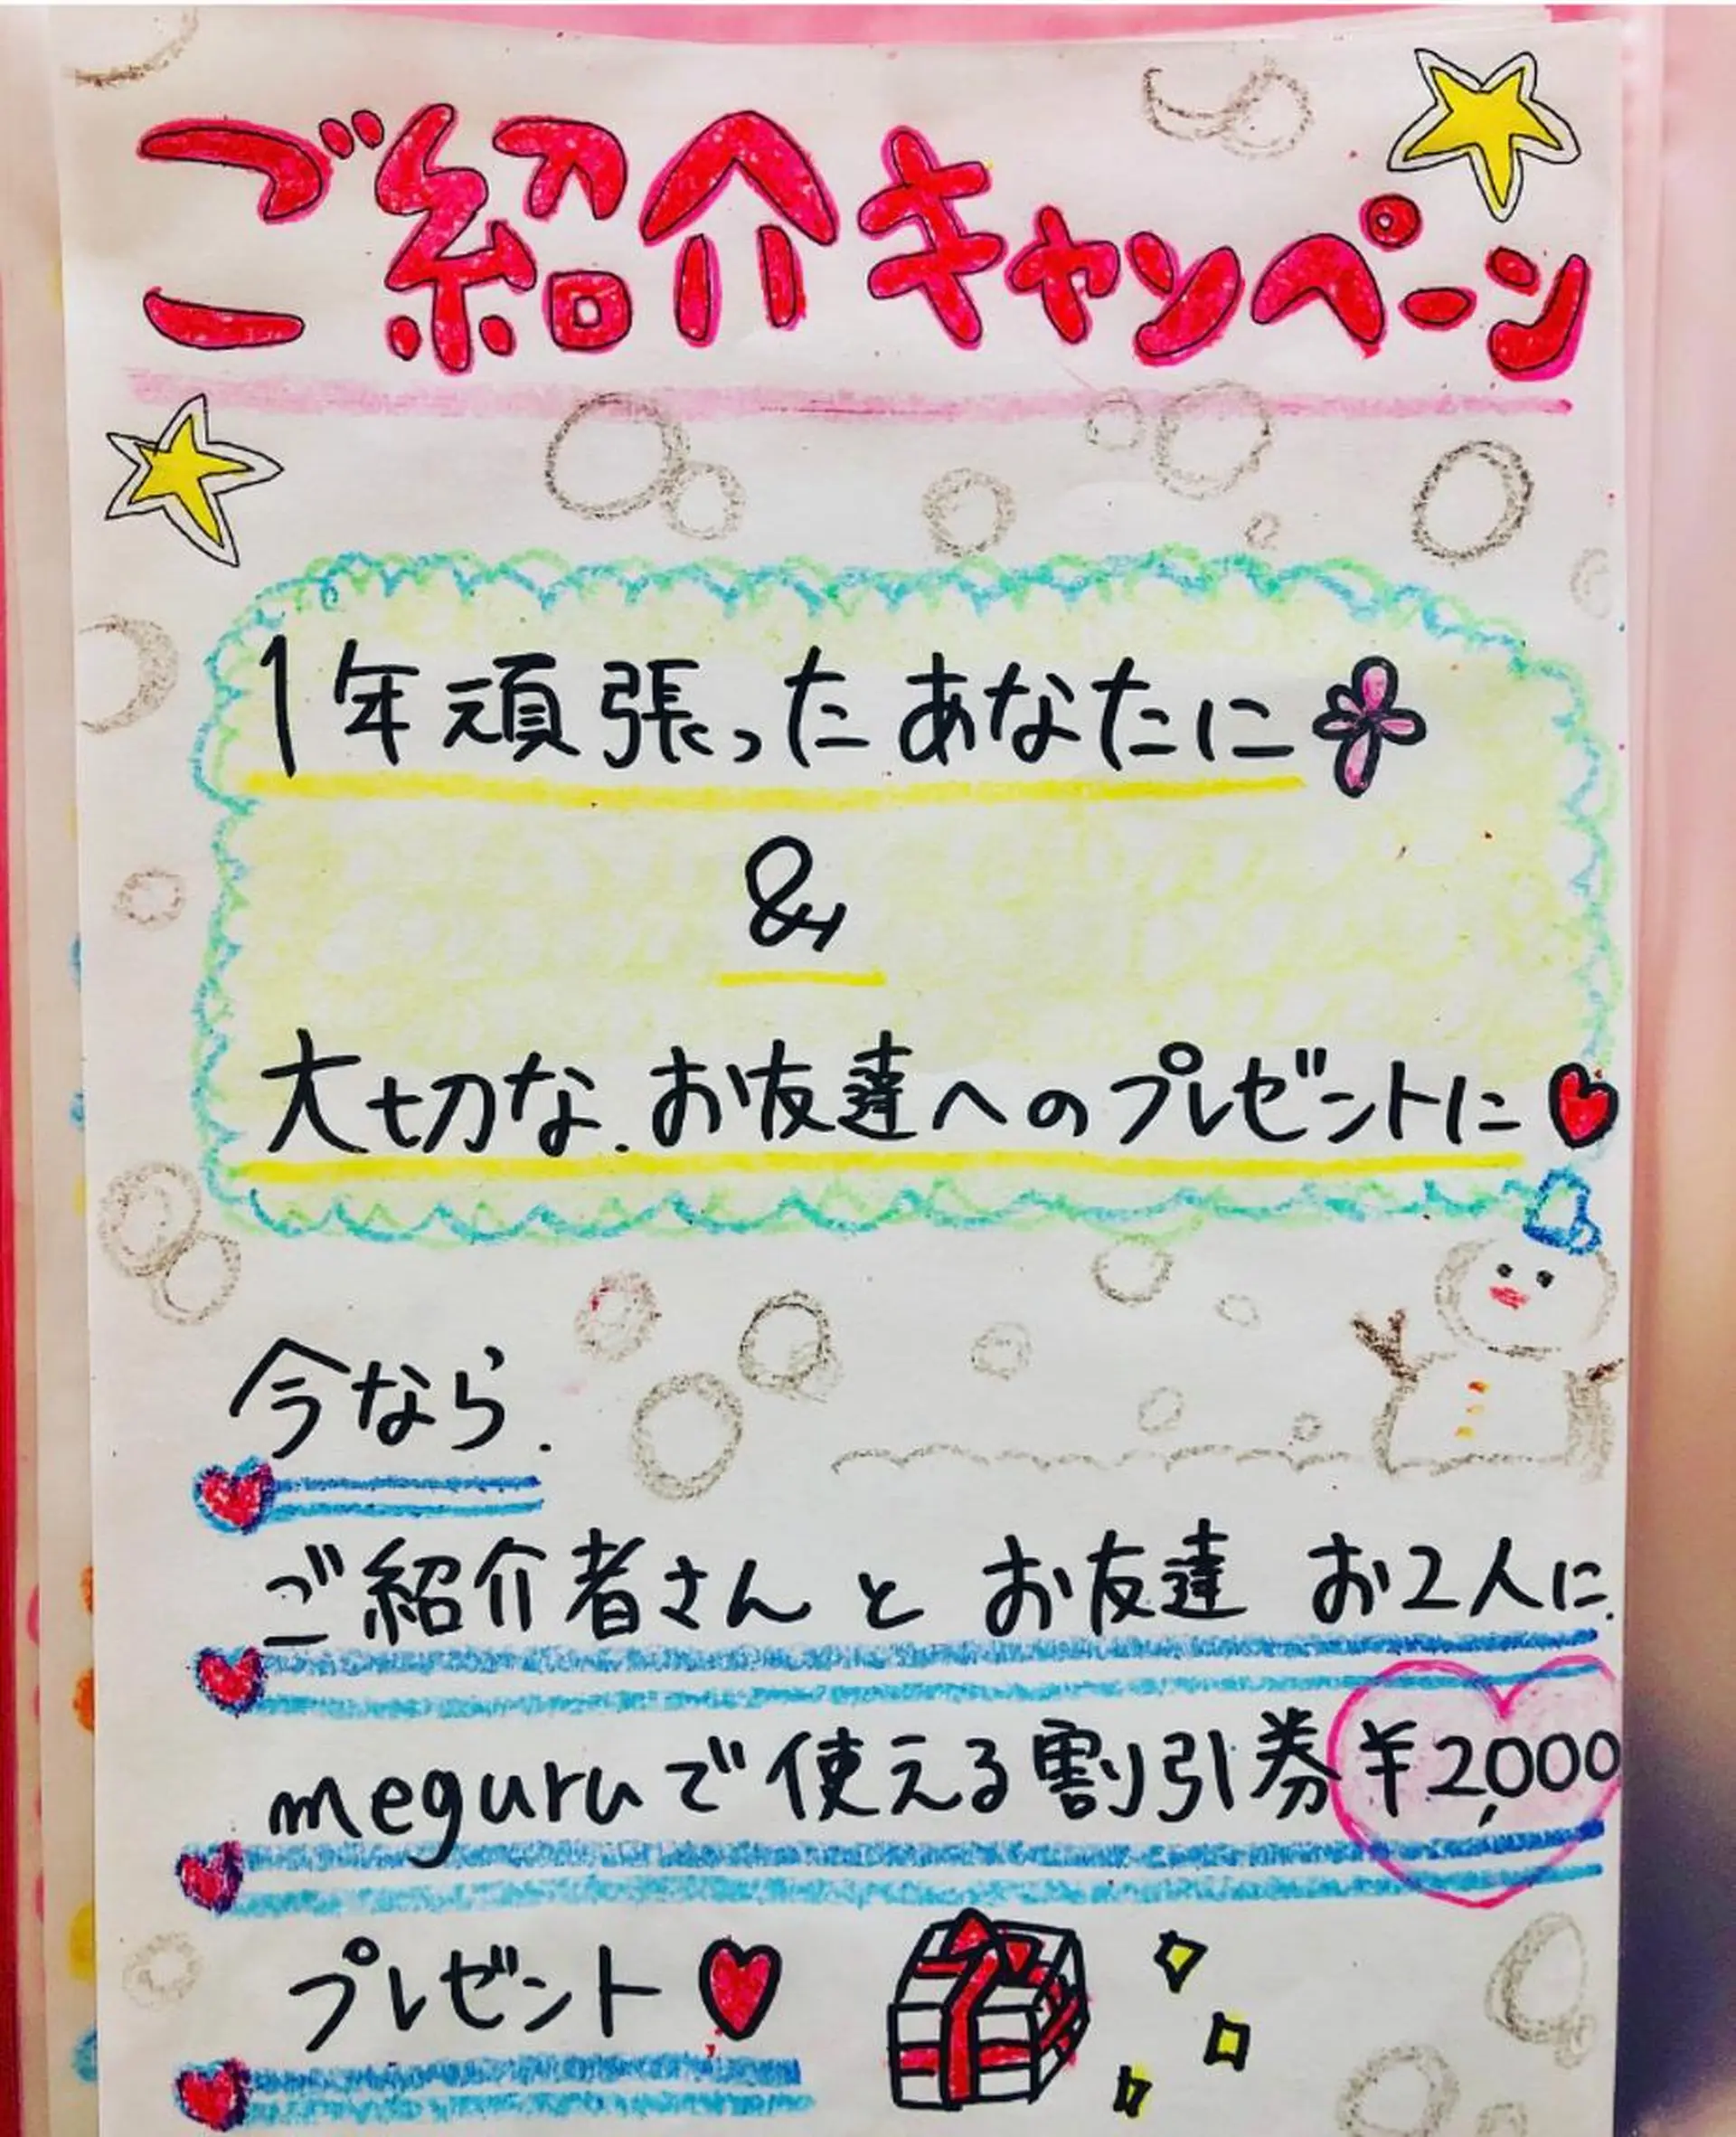 ご紹介キャンペーン
1年頑張ったあなたに
&
大切な.お友達へのプレゼントに
今なら.
ご紹介者さんと お友達 お2人に.
meguruで使える割引券¥2,000
プレゼント